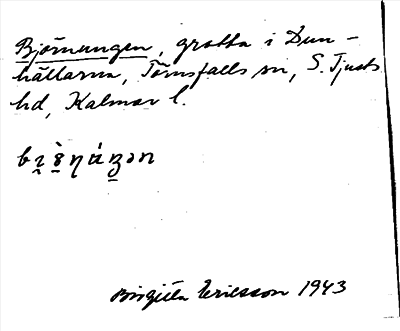 Björnungen, grotta i Dun-
hällarna, Törnsfalls sn, S. Tjusts
hd, Kalmar l.
Birgitta Ericsson 1943